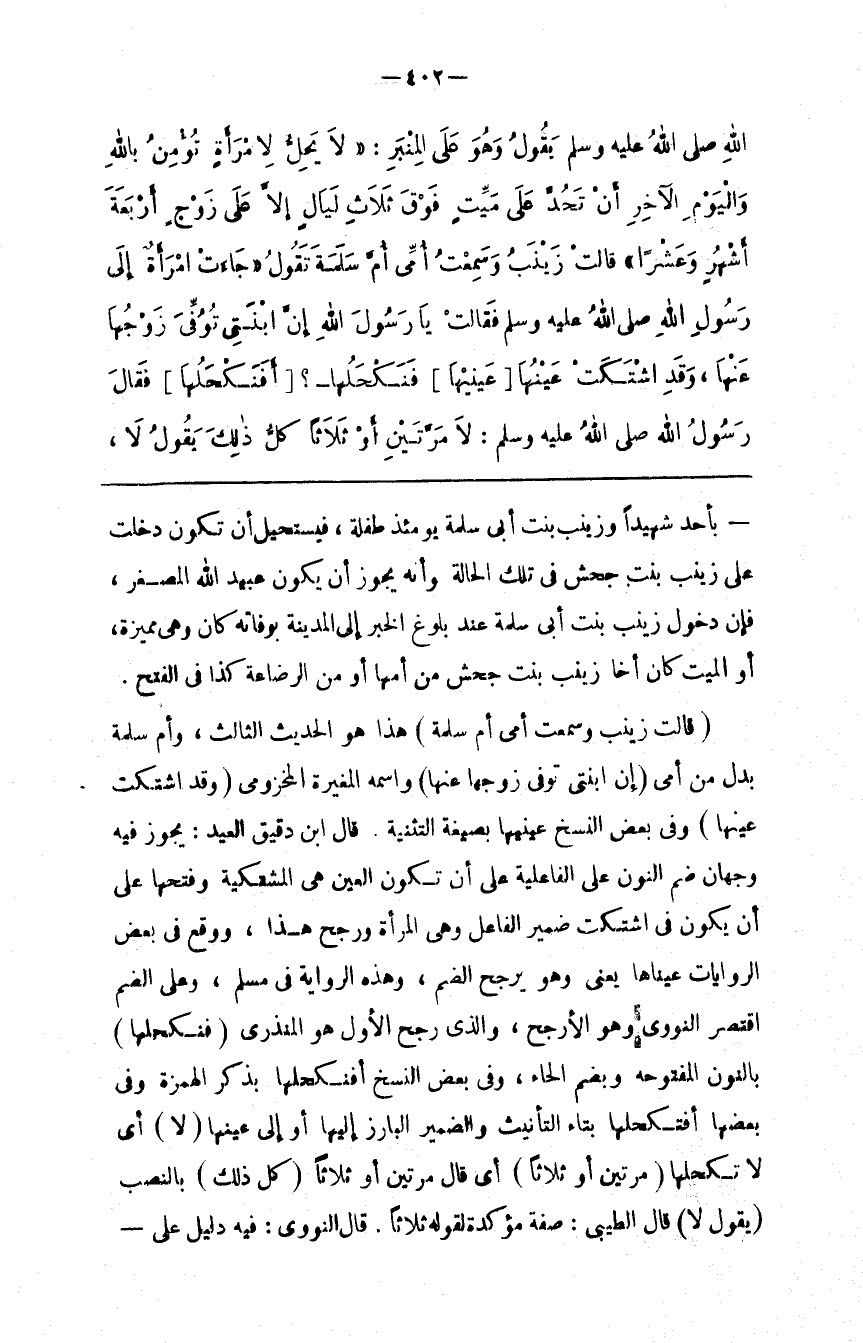 —٤٠٢—
اللهِ صلى اللهُ عليه وسلم يَقُولُ وَهُوَ عَلَى المِنْبَرِ : « لاَ يَحِلُّ لِامْرَأَةٍ تُؤْمِنُ باللهِ
وَالْيَوْمِ الْآخِرِ أَنْ تَحُدَّ عَلَى مَيِّتٍ فَوْقَ ثَلَاثِ لَيَالٍ إلاَّ عَلَى زَوْجٍ أَرْبَعَةَ
أَشْهُرٍ وَعَشْرًا» قالتْ زَيْنَبُ وَسَمِعْتُ أُمِّى أُمَّ سَلَمَةَ تَقُولُ «جَاءتْ امْرَأَةٌ إلَى
رَسُولِ اللهِ صلى اللهُ عليه وسلم فقَالتْ يَا رَسُولَ اللهِ إنَّ ابْنَتِى تُوُفِّىَ زَوْجُهَا
عَنْهَا ، وَقَدِ اشْتَكَتْ عَيْنُهَا [ عَيْنَيْهَا ] فَنَكْحَلُهَا ؟ [ أَفَنَكْحَلُهَا ] فقَالَ
رَسُولُ اللهِ صلى اللهُ عليه وسلم : لاَ مَرَّتَيْنِ أوْ ثَلَاثاً كلُّ ذٰلِكَ يَقُولُ لَا ،
— بأحد شهيداً وزينب بنت أبى سلمة يومئذ طفلة ، فيستحيل أن تكون دخلت
على زينب بنت جحش فى تلك الحالة وأنه يجوز أن يكون عبيد الله المصغر ،
فإن دخول زينب بنت أبى سلمة عند بلوغ الخبر إلى المدينة بوفاته كان وهى مميزة،
أو الميت كان أخا زينب بنت جحش من أمها أو من الرضاعة كذا فى الفتح .
( قالت زينب وسمعت أمى أم سلمة ) هذا هو الحديث الثالث ، وأم سلمة
بدل من أمى (إن ابنتى توفى زوجها عنها) واسمه المغيرة المخزومى (وقد اشتكت
عينها ) وفى بعض النسخ عينيها بصيغة التثنية . قال ابن دقيق العيد : يجوز فيه
وجهان ضم النون على الفاعلية على أن تكون العين هى المشتكية وفتحها على
أن يكون فى اشتكت ضمير الفاعل وهى المرأة ورجح هذا ، ووقع فى بعض
الروايات عيناها يعنى وهو يرجح الضم ، وهذه الرواية فى مسلم ، وعلى الضم
اقتصر النووى وهو الأرجح ، والذى رجح الأول هو المنذرى ( فنكحلها )
بالنون المفتوحه وبضم الحاء ، وفى بعض النسخ أفنكحلها بذكر الهمزة وفى
بعضها أفتكحلها بتاء التأنيث والضمير البارز إليها أو إلى عينها ( لا ) أى
لا تكحلها ( مرتين أو ثلاثاً ) أى قال مرتين أو ثلاثاً (كل ذلك ) بالنصب
(يقول لا) قال الطيبى : صفة مؤكدة لقوله ثلاثاً . قال النووى : فيه دليل على —